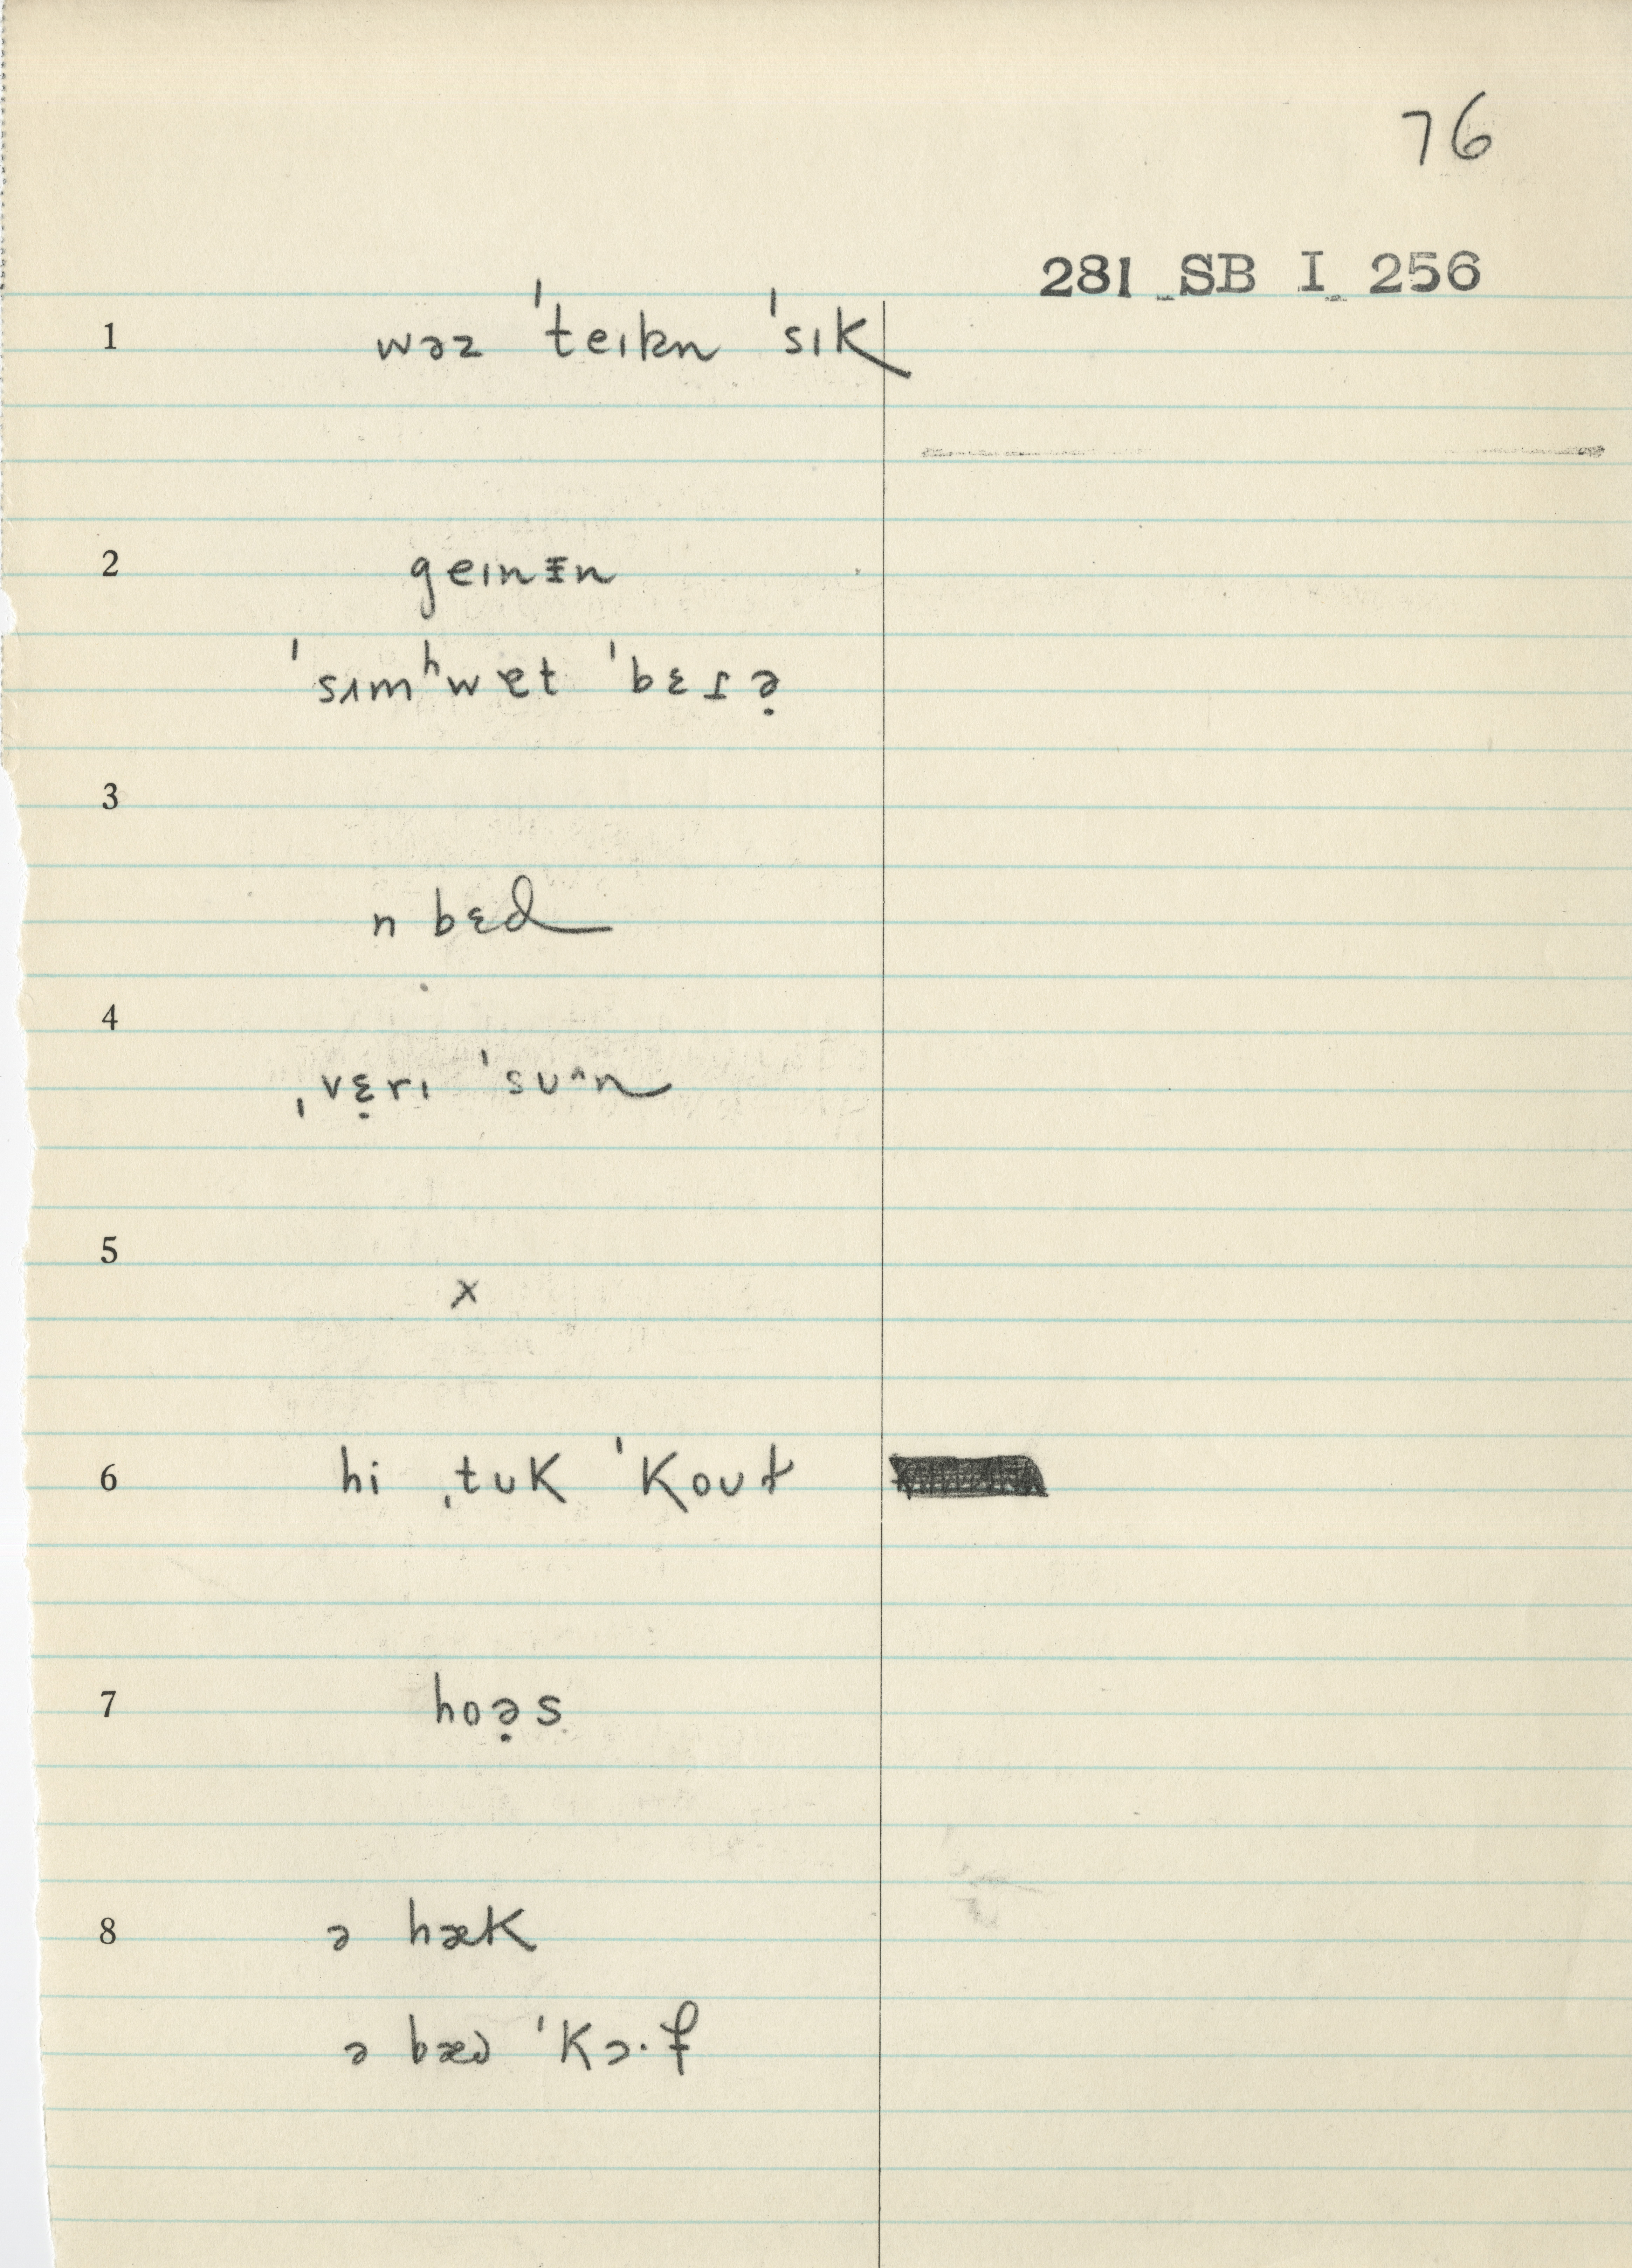 76
281 SB I 256
1 wəz ˈteɪkn ˈsɪk
2 geɪnɪn
ˈsʌmʰwɐt ˈbɛɾə̣
3
n bɛd
4
ˌvɛ̣rɪ ˈsuˆn
5
x
6 hi ˌtʊk ˈkoʊɫ
7 hoə̣s
8 ə hæk
ə bæd ˈkɔ·f